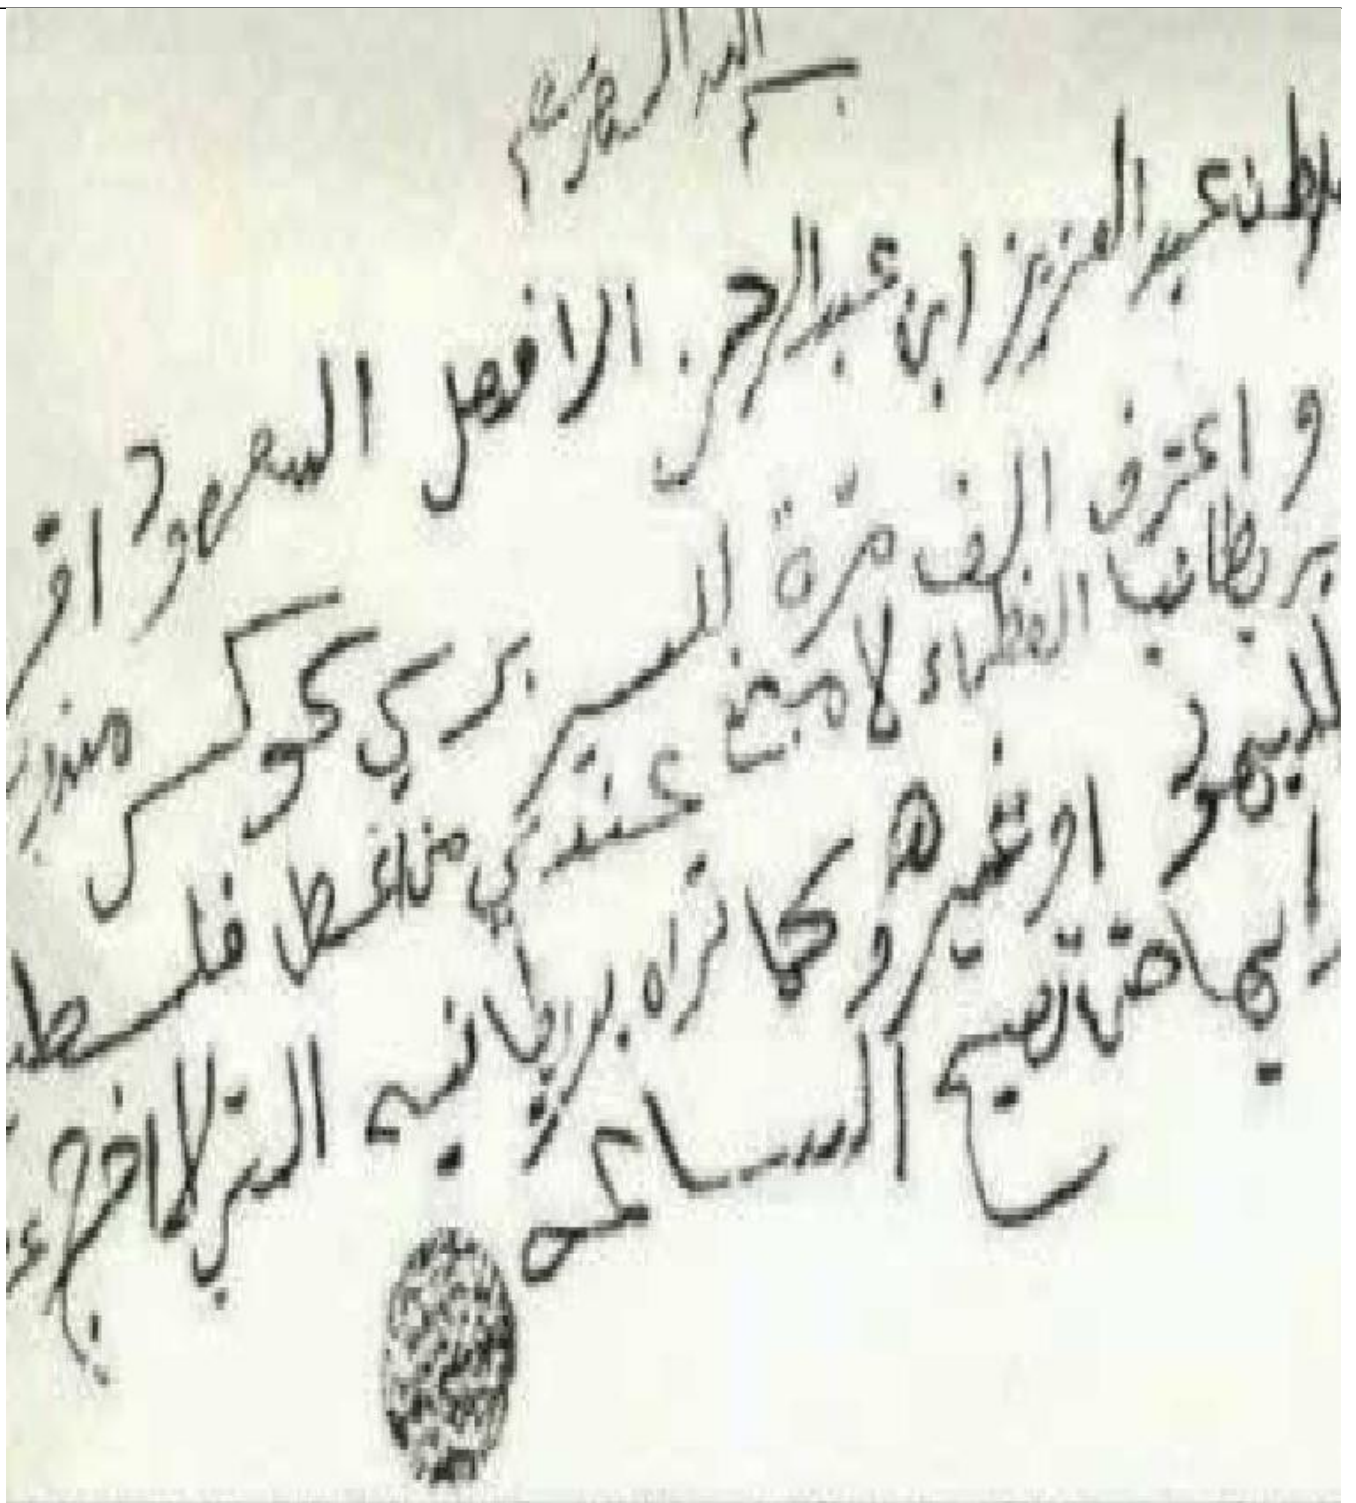 بسم الله الرحمن الرحيم
سلطن عبد العزيز ابن عبد الرحمن الافصل السعود اقر
و اعترف الف مرة السر برسي كوكس مندو
بريطانيا العظماء لا مانع عندي من اعط فلسط
لليهود او غيرهم وكما تراه بريطانيه التي لا اخرج ع
رايها حتى تصيح الساعه